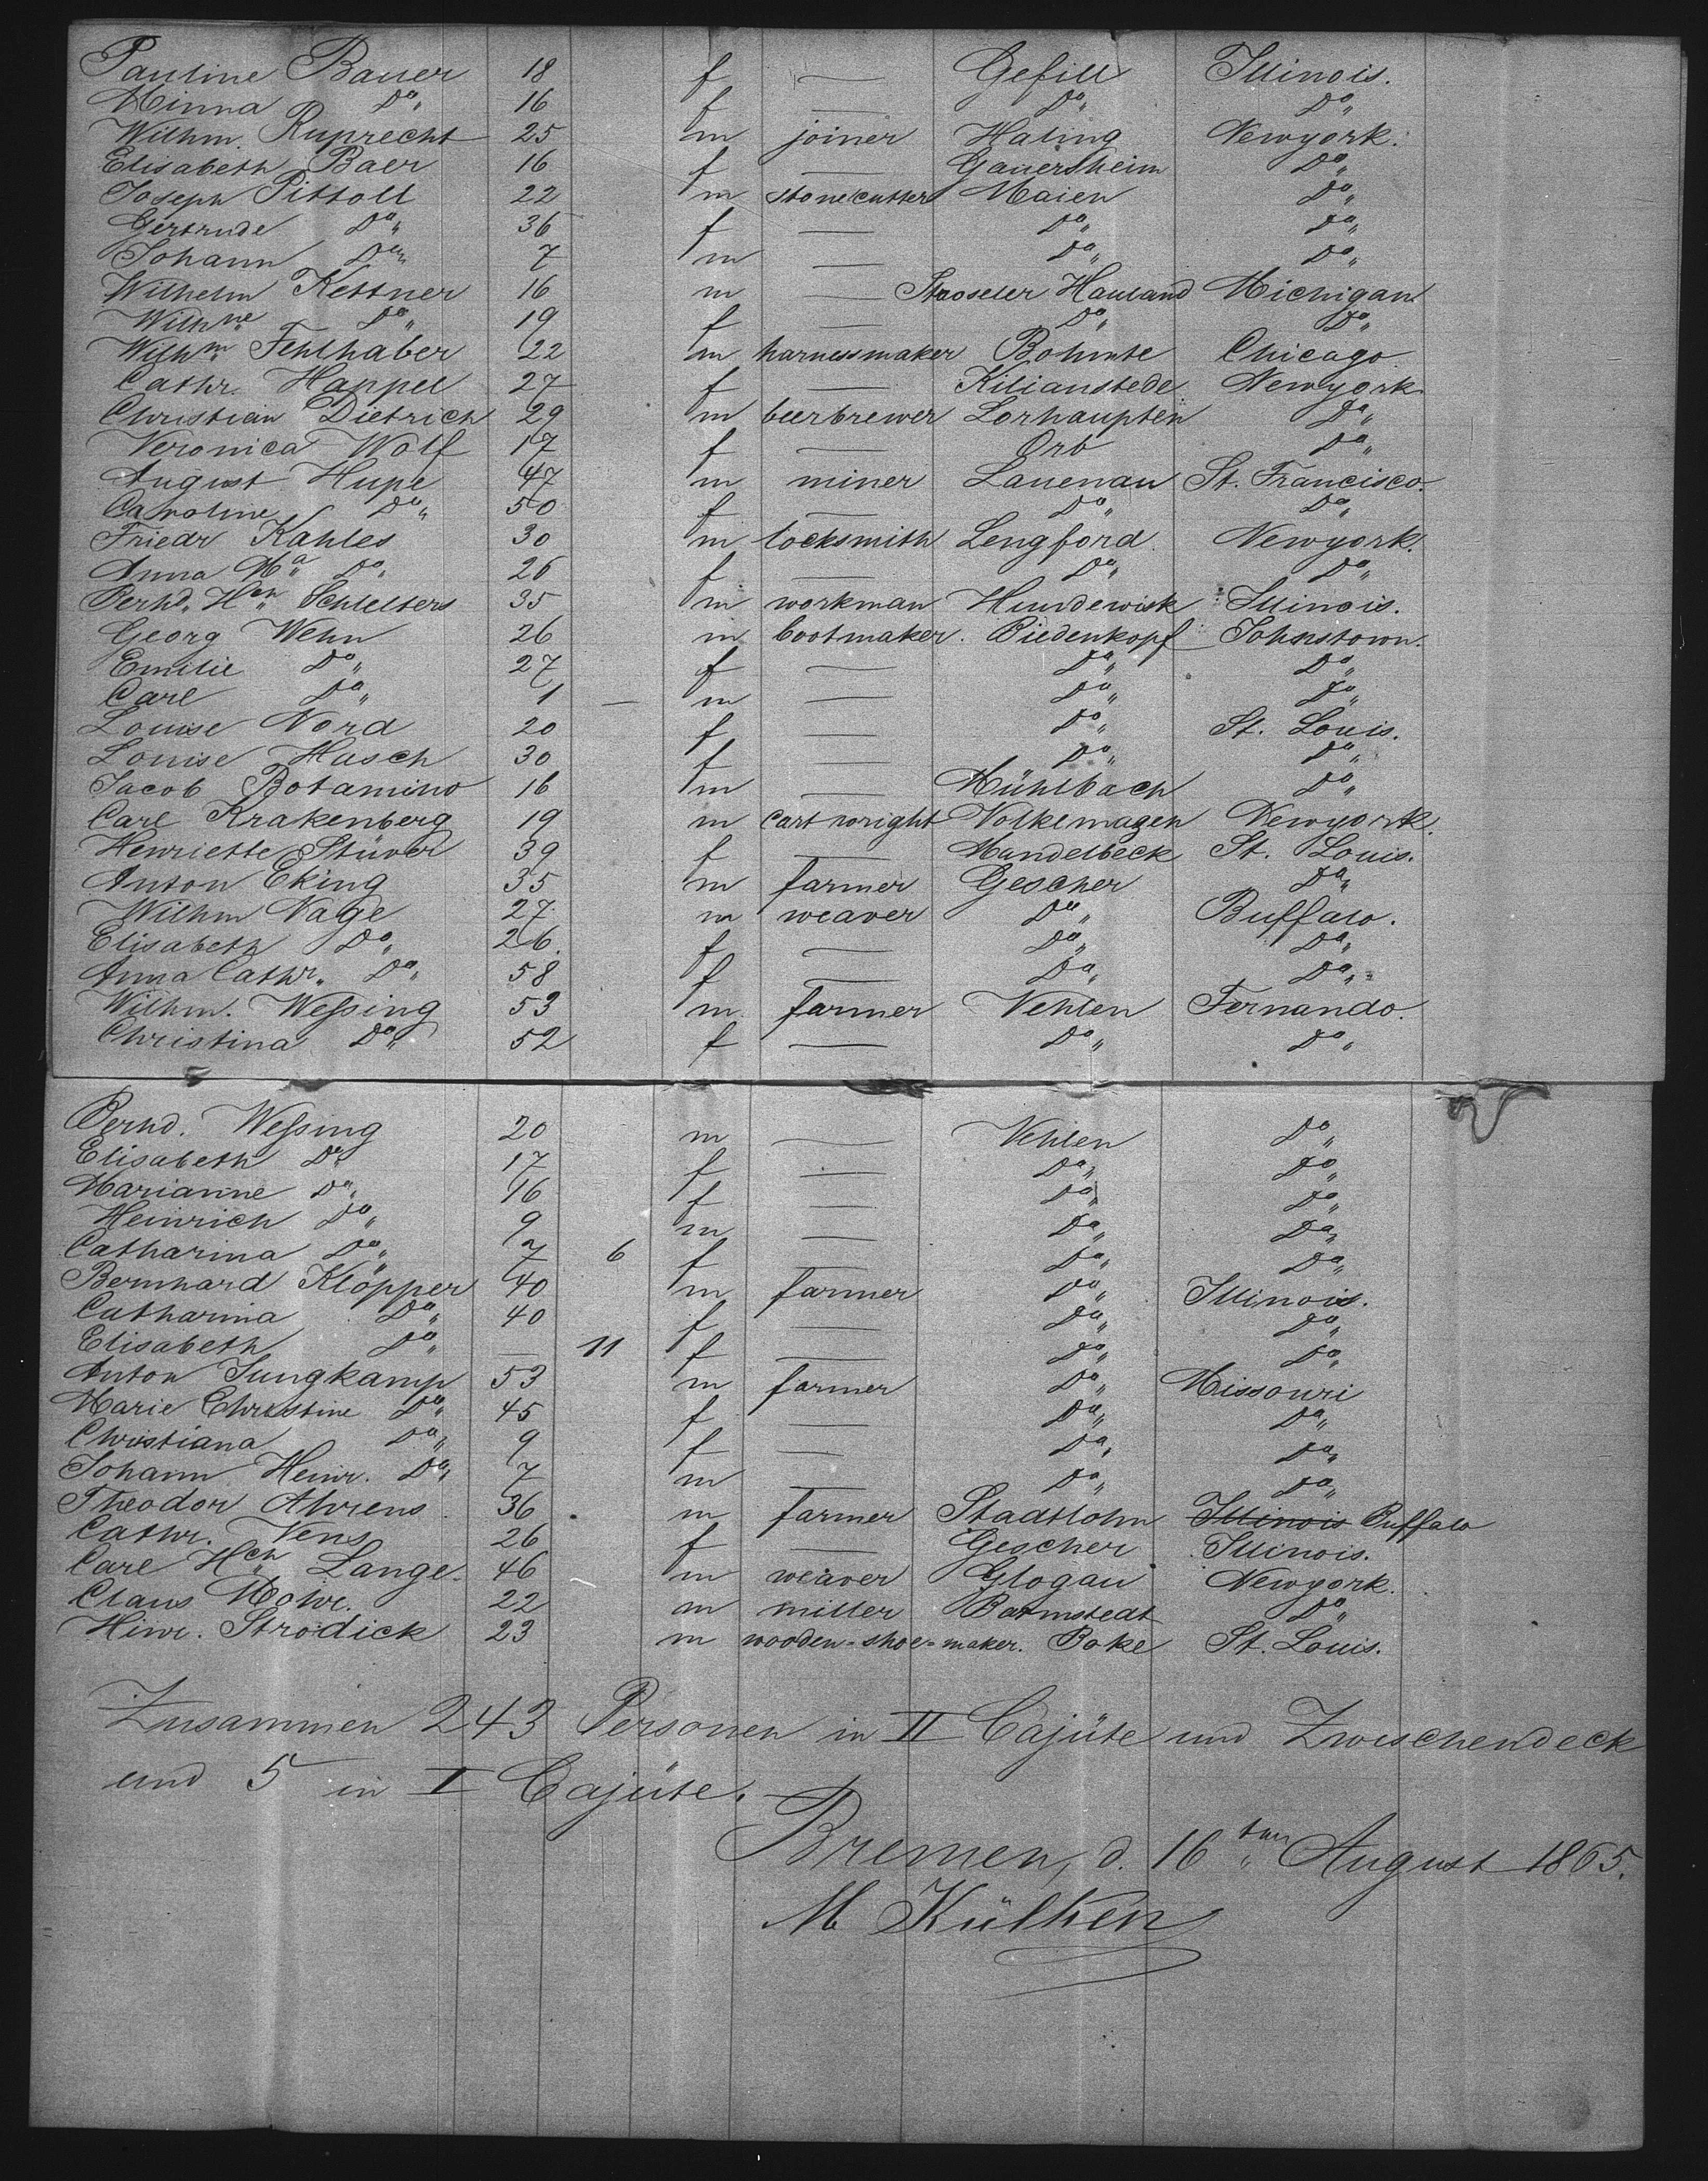 Pauline Bauer 18 f — Gefill Illinois.
Minna Do 16 f — Do Do
Wilhm. Ruprecht 25 m joiner Haling Newyork.
Elisabeth Baer 16 f — Gauersheim Do
Joseph Pittoll 22 m stonecutter Maien Do
Gertrude Do 36 f — Do Do
Johann Do 7 m — Do Do
Wilhelm Kettner 16 m — Hauland Michigan
Wilhne Do 19 f — Do Do
Wilhm Fehlhaber 22 m harnessmaker Bohmte Chicago
Cathr. Happel 27 f — Kilianstede Newyork
Christian Dietrich 29 m beerbrewer Lorhaupten Do
Veronica Wolf 17 f — Orb Do
August Hupe 47 m miner Lauenau St. Francisco.
Caroline Do 50 f — Do Do
Friedr Kahles 30 m locksmith Lengford Newyork.
Anna Ma Do 26 f — Do Do
Bernd. Hch Schlelters 35 m workman Hundewisk Illinois.
Georg Wehn 26 m bootmaker. Biedenkopf Johnstown.
Emilie Do 27 f — Do Do
Carl Do 1 — m — Do Do
Louise Nord 20 f — Do St. Louis.
Louise Hasch 30 f — Do Do
Jacob Botamino 16 m — Mühlbach Do
Carl Krakenberg 19 m cartwright Volkemazen Newyork.
Henriette Stüver 39 f — Mandelbeck St. Louis.
Anton Eking 35 m farmer Gescher Do
Wilhm Nage 27 m weaver Do Buffalo.
Elisabeth Do 26. f — Do Do
Anna Cathr. Do 58 f — Do Do
Wilhm. Weſsing 53 m farmer Vehlen Fernando.
Christina Do 52 f — Do Do
Bernd. Weſsing 20 m — Vehlen Do
Elisabeth Do 17 f — Do Do
Marianne Do 16 f — Do Do
Heinrich Do 9 m — Do Do
Catharina Do 7 6 f — Do Do
Bernhard Klöpper 40 m farmer Do Illinois.
Catharina Do 40 f — Do Do
Elisabeth Do — 11 f — Do Do
Anton Jungkamp 53 m farmer Do Missouri
Marie Christine Do 45 f — Do Do
Christiana Do 9 f — Do Do
Johann Heinr. Do 7 m — Do Do
Theodor Ahrens 36 m farmer Stadtlohn Illinois Buffalo
Cathr. Jens 26 f — Gescher Illinois.
Carl Hch Lange 46 m weaver Glogau Newyork.
Claus Mohr. 22 m miller Barmstedt Do
Hinr. Strodick 23 m wooden-shoe-maker. Boke St. Louis.
Zusammen 243 Personen in II Cajüte und Zwischendeck
und 5 in I Cajüte.
Bremen, d. 16ten August 1865.
M Külken